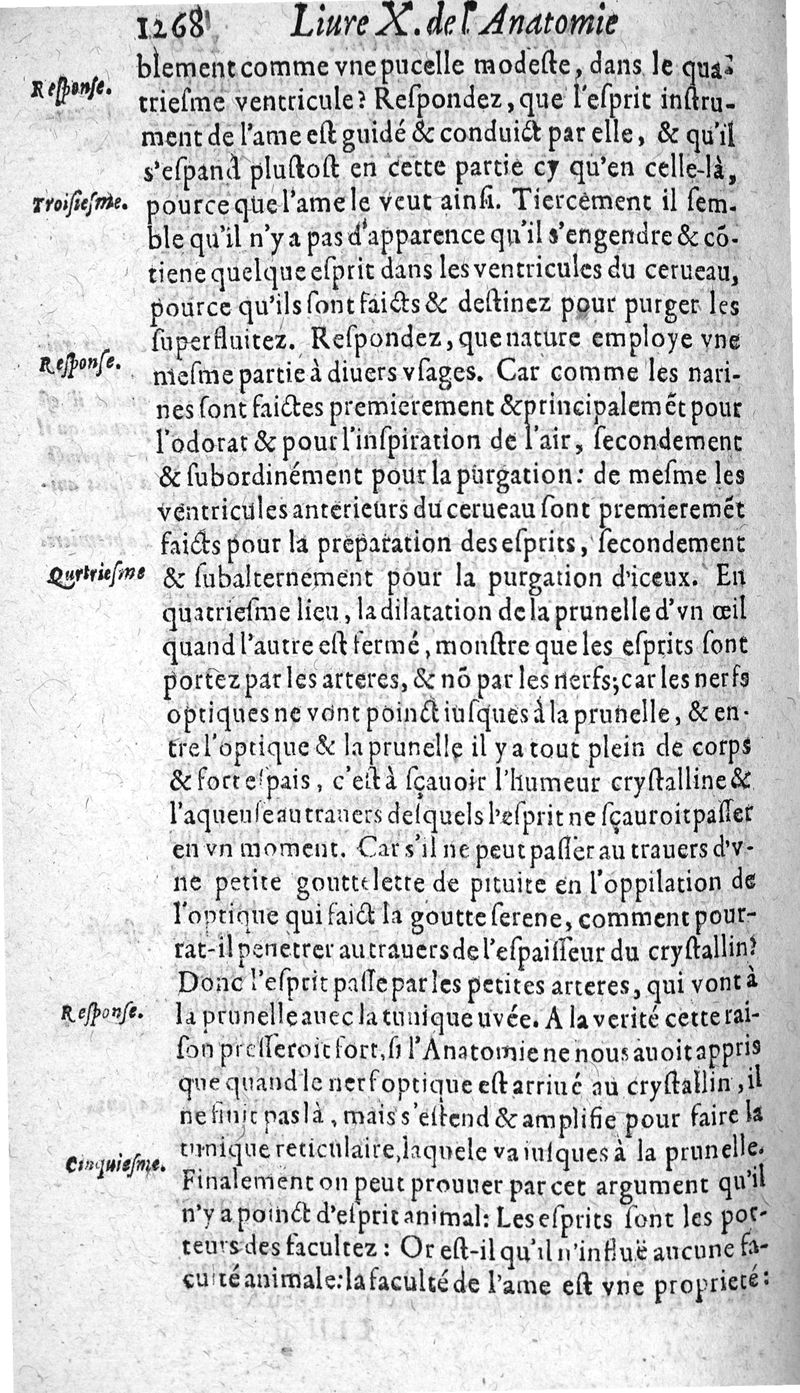 1268 Liure X. de l'Anatomie
blement comme vne pucelle modeſte, dans le qua-
Reſponſe.
trieſme ventricule? Reſpondez, que l'eſprit inſtru-
ment de l'ame eſt guidé & conduict par elle, & qu'il
s'eſpand pluſtoſt en cette partie cy qu'en celle-là,
Troiſieſme.
pource que l'ame le veut ainſi. Tiercement il ſem-
ble qu'il n'y a pas d'apparence qu'il s'engendre & cō-
tiene quelque eſprit dans les ventricules du cerueau,
pource qu'ils ſont faicts & deſtinez pour purger les
ſuperfluitez. Reſpondez, que nature employe vne
Reſponſe.
meſme partie à diuers vſages. Car comme les nari-
nes ſont faictes premierement & principalemēt pour
l'odorat & pour l'inſpiration de l'air, ſecondement
& ſubordinément pour la purgation: de meſme les
ventricules anterieurs du cerueau ſont premieremēt
faicts pour la preparation des eſprits, ſecondement
Qurtrieſme
& ſubalternement pour la purgation d'iceux. En
quatrieſme lieu, la dilatation de la prunelle d'vn œil
quand l'autre eſt fermé, monſtre que les eſprits ſont
portez par les arteres, & nō par les nerfs; car les nerfs
optiques ne vont poinct iuſques à la prunelle, & en-
tre l'optique & la prunelle il y a tout plein de corps
& fort eſpais, c'eſt à ſçauoir l'humeur cryſtalline &
l'aqueuſe au trauers deſquels l'eſprit ne ſçauroit paſſer
en vn moment. Car s'il ne peut paſſer au trauers d'v-
ne petite gouttelette de pituite en l'oppilation de
l'optique qui faict la goutte ſerene, comment pour-
rat-il penetrer au trauers de l'eſpaiſſeur du cryſtallin?
Donc l'eſprit paſſe par les petites arteres, qui vont à
Reſponſe.
la prunelle auec la tunique uvée. A la verité cette rai-
ſon preſſeroit fort, ſi l'Anatomie ne nous auoit appris
que quand le nerf optique eſt arriué au cryſtallin, il
ne finit pas là, mais s'eſtend & amplifie pour faire la
tunique reticulaire, laquele va iuſques à la prunelle.
Cinquieſme.
Finalement on peut prouuer par cet argument qu'il
n'y a poinct d'eſprit animal: Les eſprits ſont les por-
teurs des facultez: Or eſt-il qu'il n'influë aucune fa-
culté animale: la faculté de l'ame eſt vne proprieté: